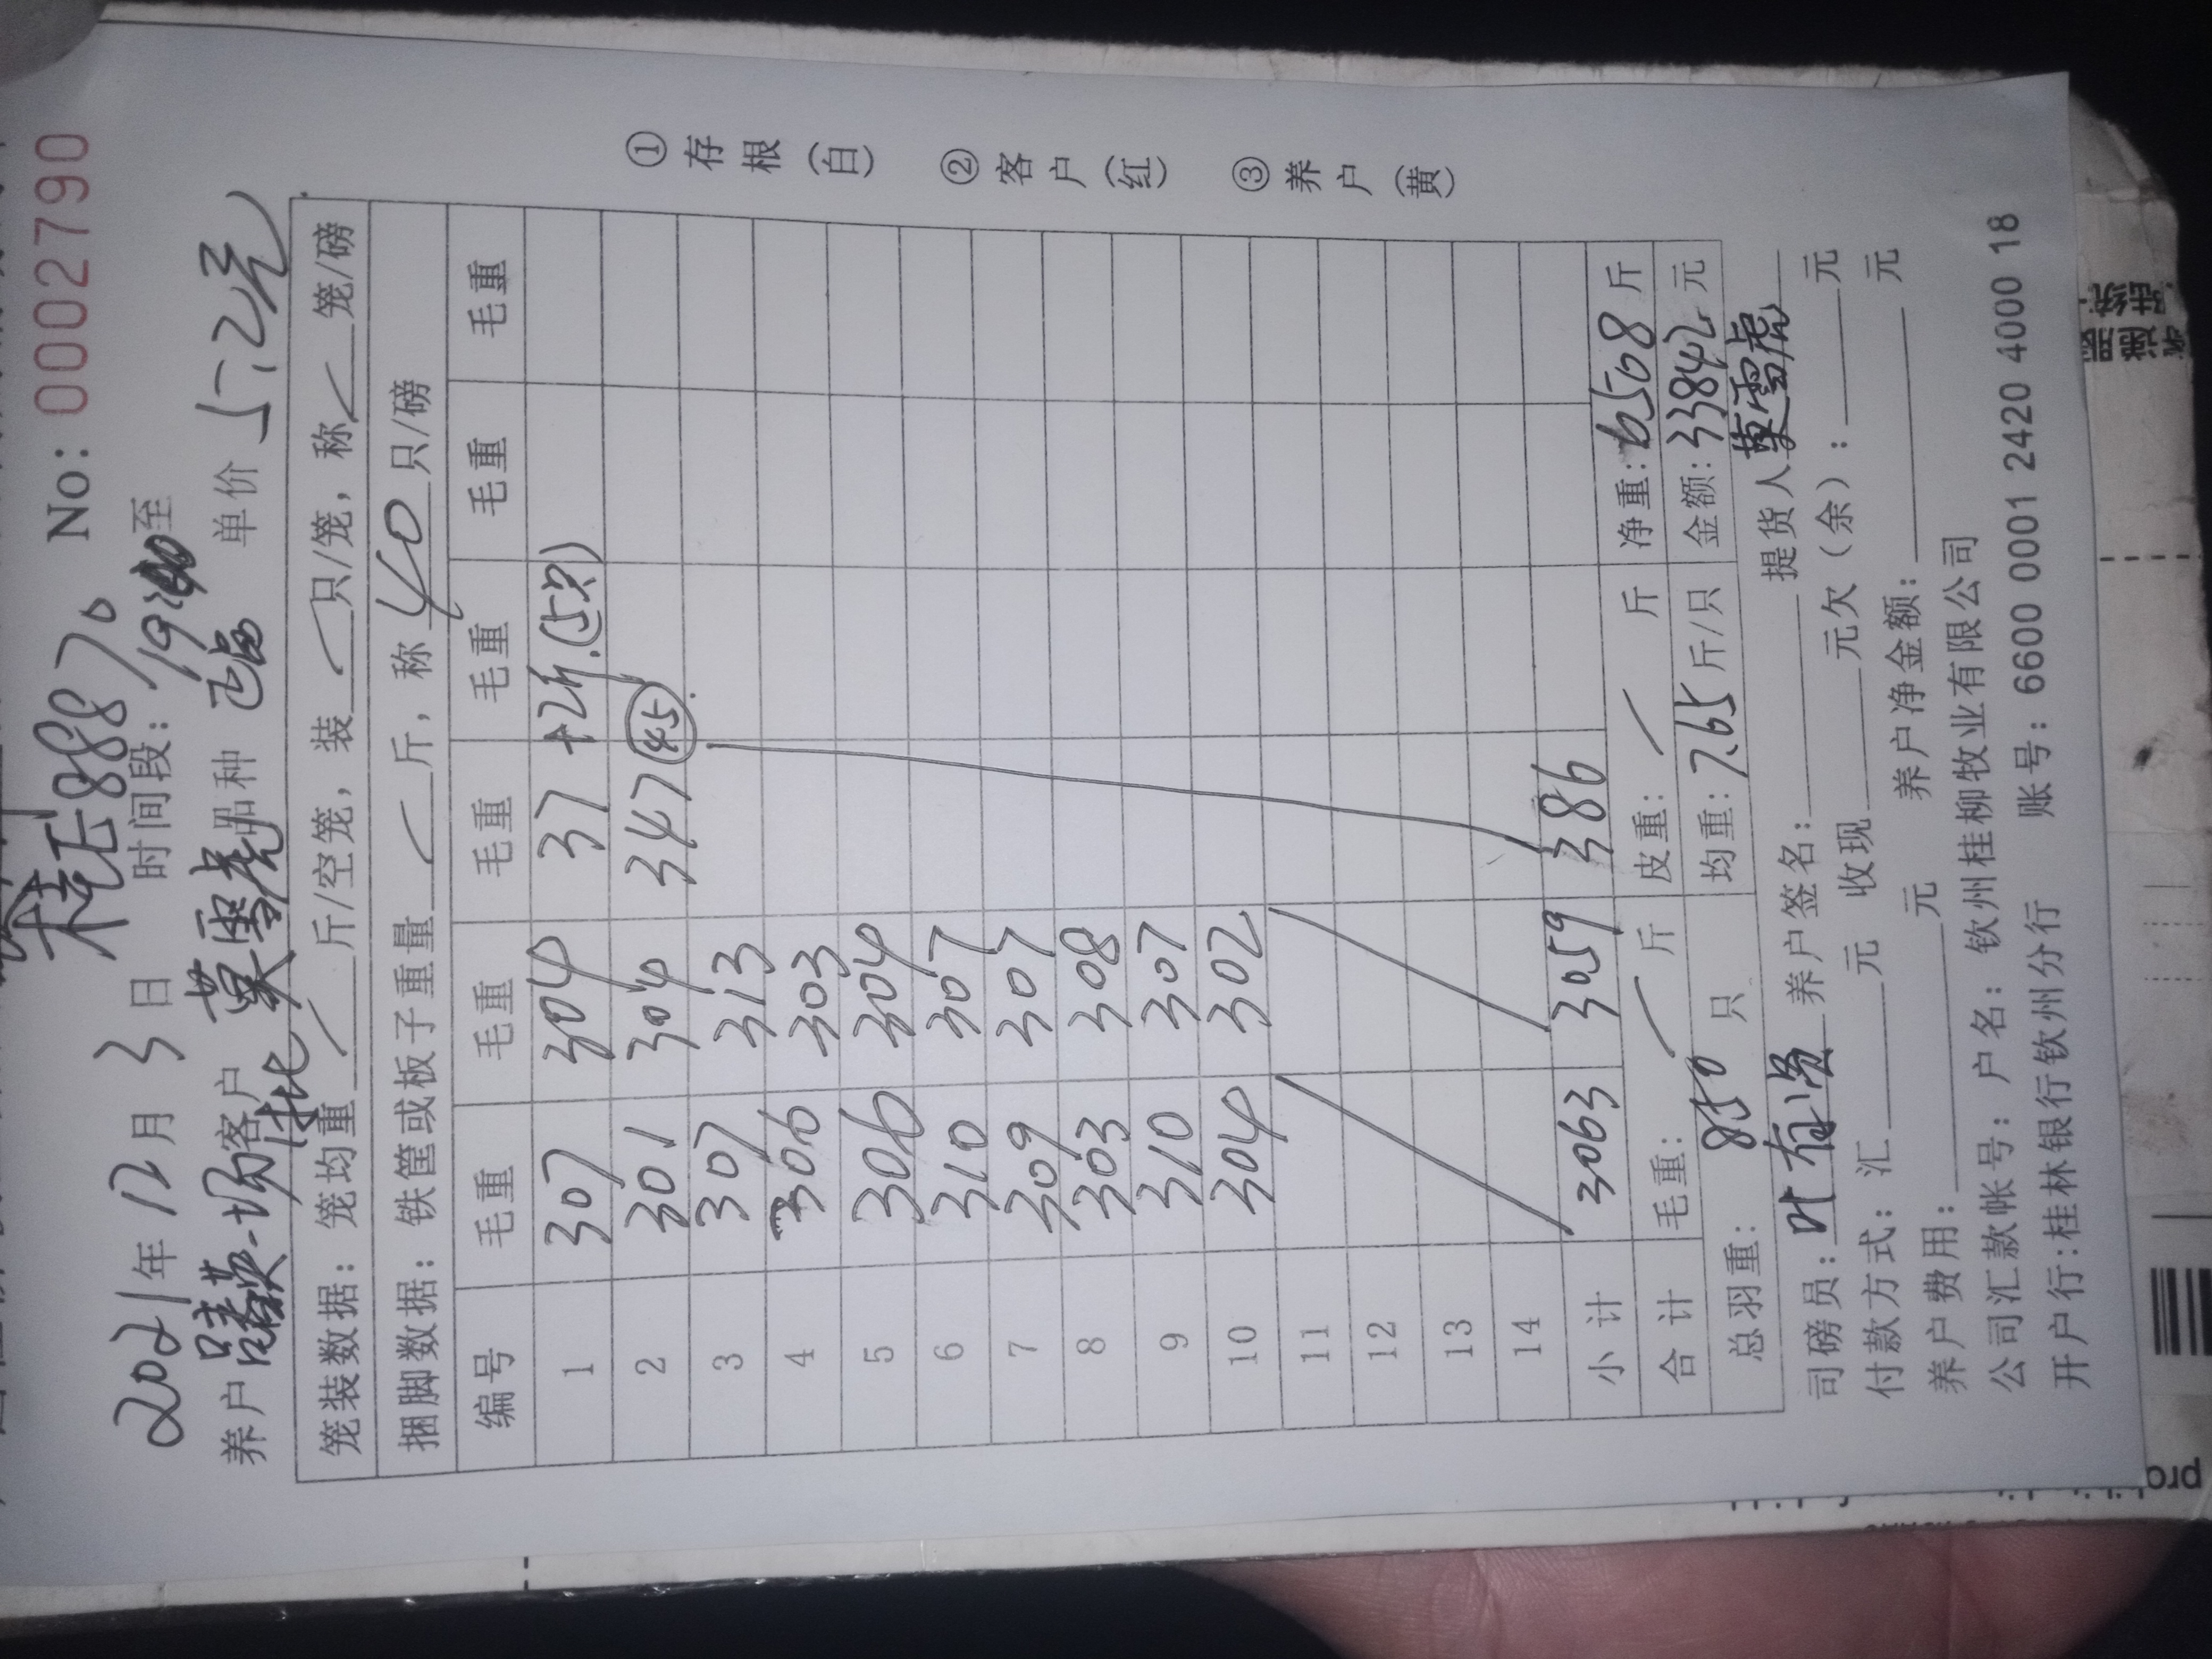 桂 888% No: 0002790
2021年 12月 3日 时间段: 19 至
养户 燕-场 客户 莫雪虎 品种 单价 5.2元
笼装数据: 笼均重 斤/空笼, 装 只/笼, 称 笼/磅
捆脚数据: 铁筐或板子重量 斤, 称 40 只/磅
编号 毛重 毛重 毛重 毛重 毛重 毛重
1 307 304 37 +2斤.(5只)
2 301 304 347 (45)
3 307 313
4 306 303
5 306 304
6 310 307
7 309 307
8 303 308
9 310 307
10 304 302
11
12
13
14
小计 3063 3059 386
合计 毛重: 斤 皮重: 斤 净重: 6508 斤
总羽重: 850 只 均重: 7.65 斤/只 金额: 33842 元
司磅员: 叶有 养户签名: 提货人 莫雪虎
付款方式: 汇 元 收现 元欠(余): 元
养户费用: 元 养户净金额: 元
公司汇款帐号: 户名: 钦州桂柳牧业有限公司
开户行:桂林银行钦州分行 账号: 6600 0001 2420 4000 18
①存根(白) ②客户(红) ③养户(黄)
pro